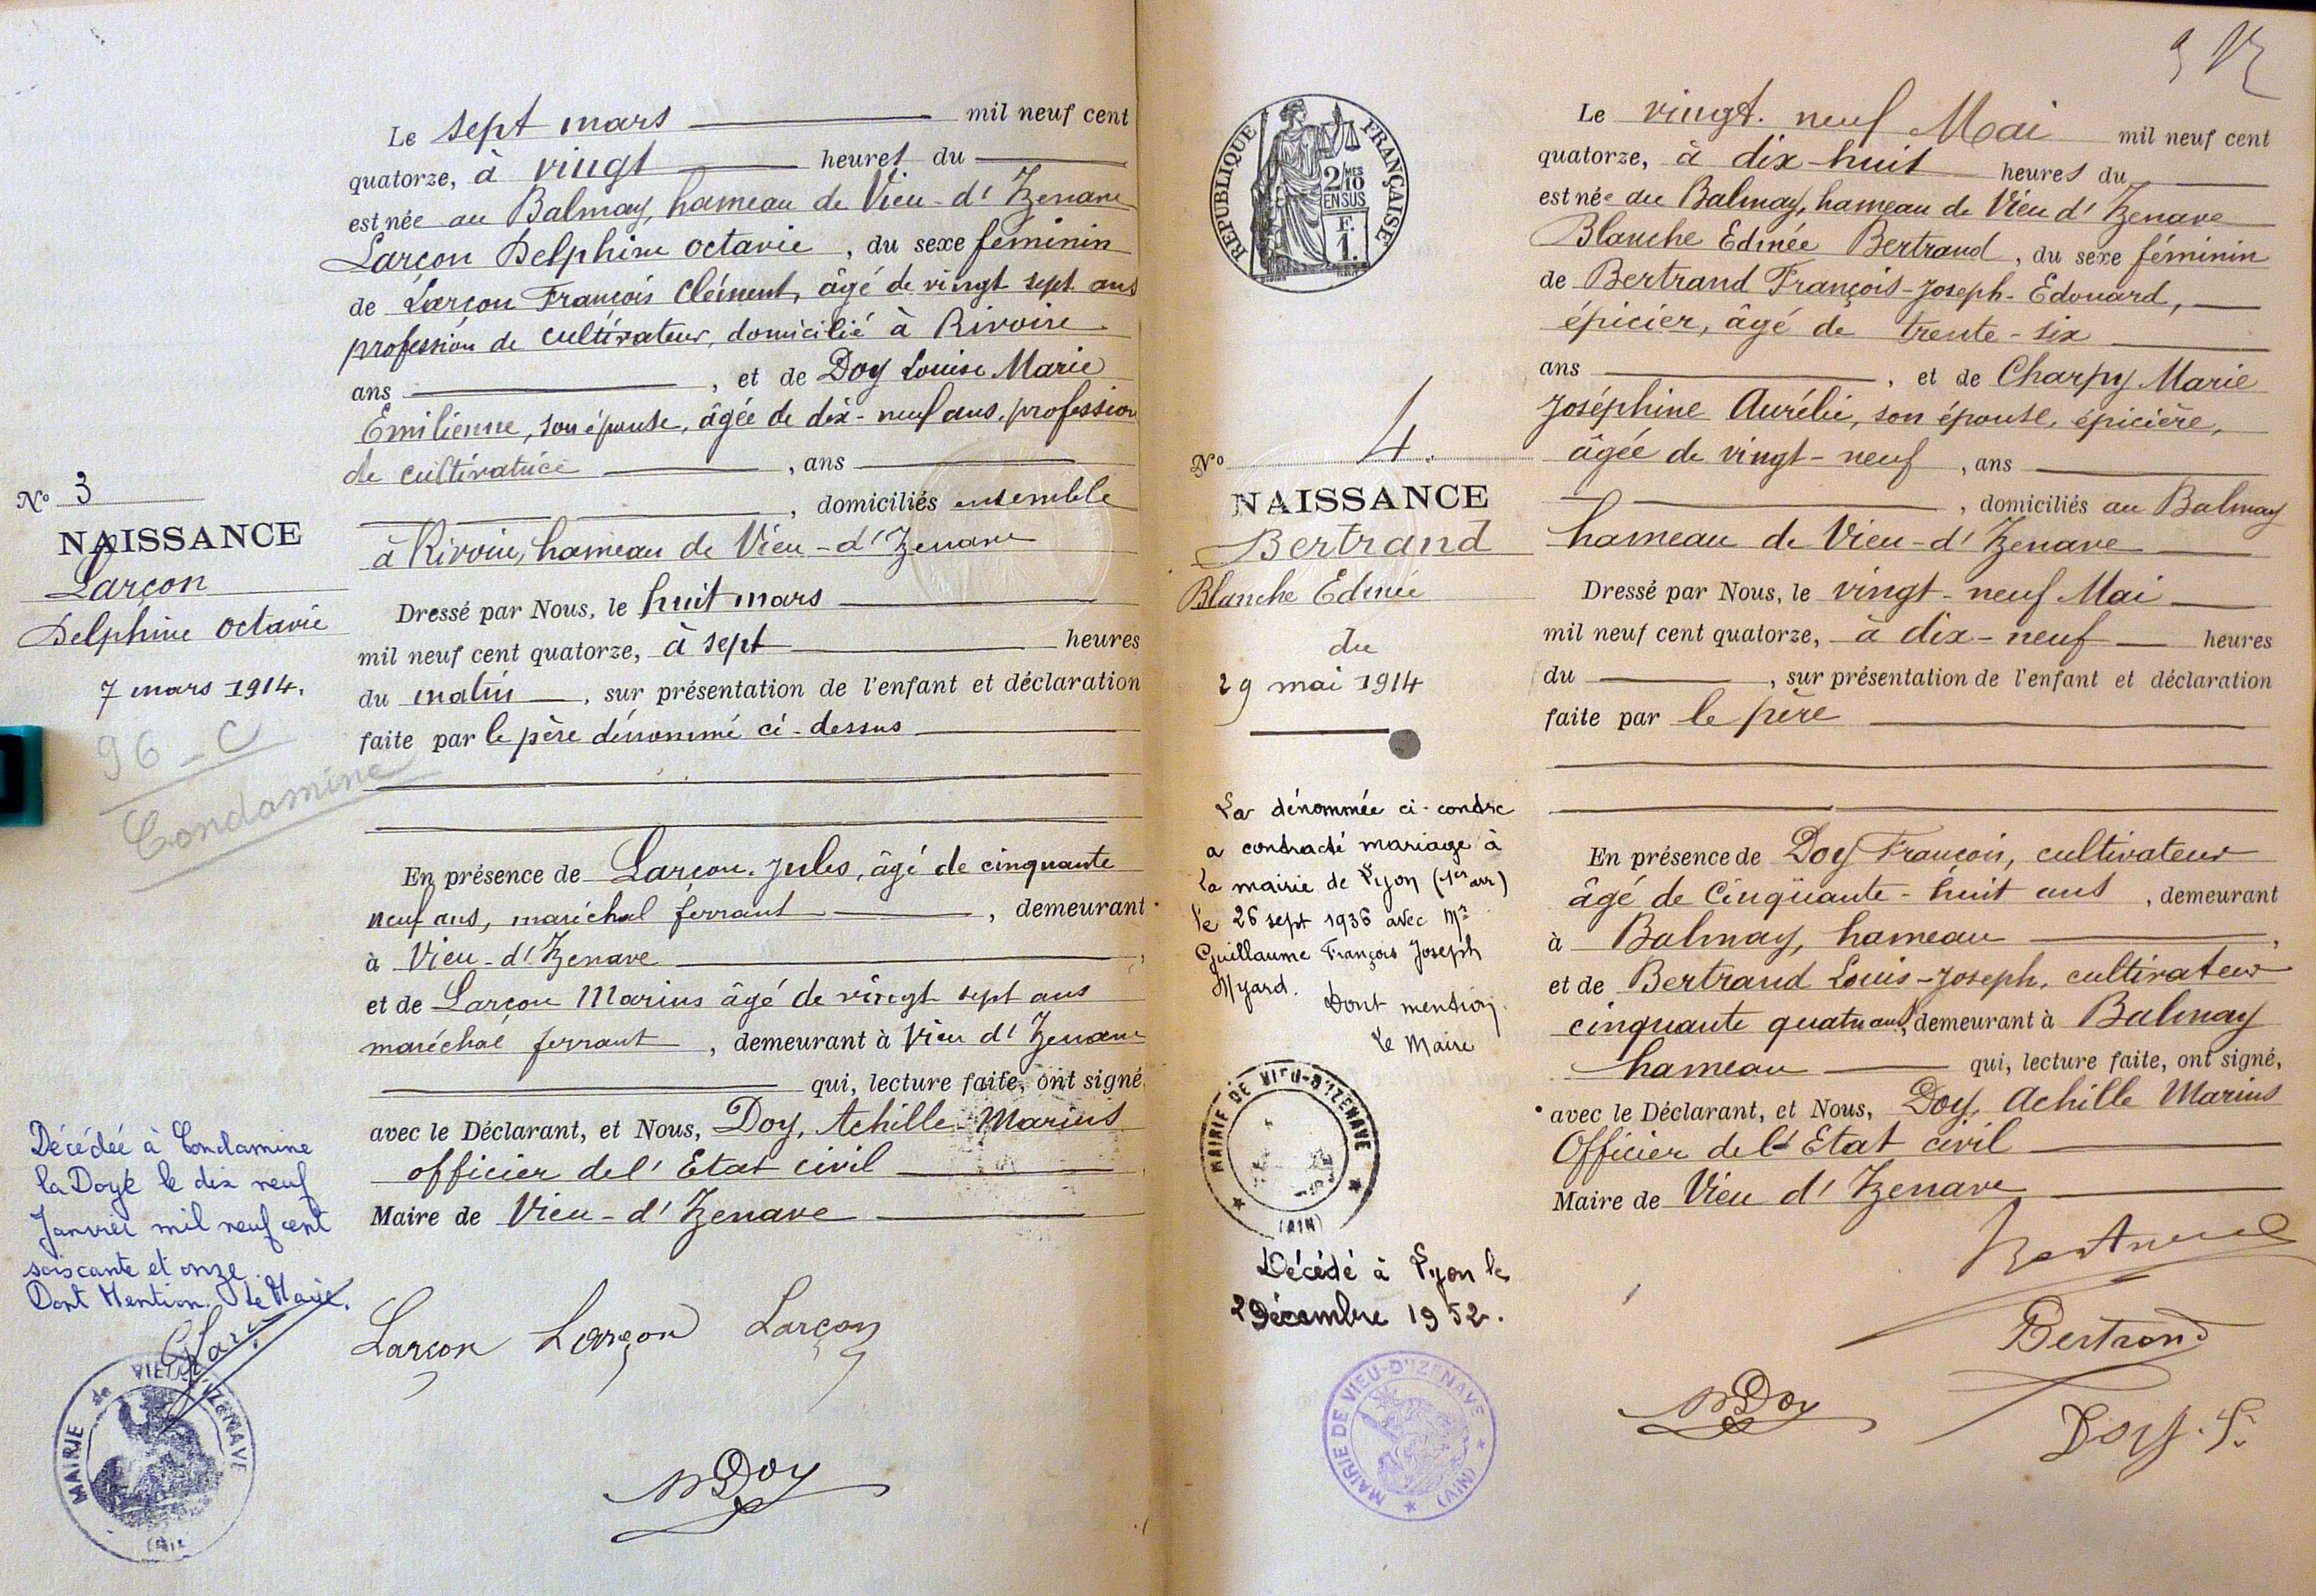 Le sept mars mil neuf cent
quatorze, à vingt heures du
est née au Balmay, hameau de Vieu-d'Izenave
Larçon Delphine Octavie, du sexe féminin
de Larçon François Clément, âgé de vingt sept ans
profession de cultivateur, domicilié à Rivoire
ans , et de Doy Louise Marie
Emilienne, son épouse, âgée de dix-neuf ans, profession
de cultivatrice , ans
, domiciliés ensemble
à Rivoire, hameau de Vieu-d'Izenave
Dressé par Nous, le huit mars
mil neuf cent quatorze, à sept heures
du matin, sur présentation de l'enfant et déclaration
faite par le père dénommé ci-dessus
En présence de Larçon Jules, âgé de cinquante
neuf ans, maréchal ferrant , demeurant
à Vieu-d'Izenave ,
et de Larçon Marius âgé de vingt sept ans
maréchal ferrant , demeurant à Vieu d'Izenave
qui, lecture faite, ont signé
avec le Déclarant, et Nous, Doy, Achille Marius
officier de l'Etat civil
Maire de Vieu-d'Izenave
Larçon Larçon Larçon
Doy
N° 3
NAISSANCE
Larçon
Delphine Octavie
7 mars 1914.
96-C
Condamine
Décédée à Condamine
la Doye le dix neuf
Janvier mil neuf cent
soixante et onze.
Dont Mention. Le Maire.
MAIRIE de VIEU-D'IZENAVE
(Ain)
REPUBLIQUE FRANÇAISE
2/10
MES
EN SUS
F.
1.
N° 4.
NAISSANCE
Bertrand
Blanche Edmée
du
29 mai 1914
La dénommée ci-contre
a contracté mariage à
la mairie de Lyon (1er arr)
le 26 sept 1936 avec Mr
Guillaume François Joseph
Myard. Dont mention.
Le Maire
MAIRIE DE VIEU-D'IZENAVE
(AIN)
Décédé à Lyon le
2 Décembre 1952.
MAIRIE DE VIEU-D'IZENAVE
(AIN)
Le vingt-neuf Mai mil neuf cent
quatorze, à dix-huit heures du
est née au Balmay, hameau de Vieu d'Izenave
Blanche Edmée Bertrand, du sexe féminin
de Bertrand François-Joseph-Edouard,
épicier, âgé de trente-six
ans , et de Charpy Marie
Joséphine Aurélie, son épouse, épicière,
âgée de vingt-neuf , ans
, domiciliés au Balmay
hameau de Vieu-d'Izenave
Dressé par Nous, le vingt-neuf Mai
mil neuf cent quatorze, à dix-neuf heures
du , sur présentation de l'enfant et déclaration
faite par le père
En présence de Doy François, cultivateur
âgé de Cinquante-huit ans , demeurant
à Balmay, hameau ,
et de Bertrand Louis-Joseph, cultivateur
cinquante quatre ans, demeurant à Balmay
hameau qui, lecture faite, ont signé,
avec le Déclarant, et Nous, Doy, Achille Marius
Officier de l'Etat civil
Maire de Vieu d'Izenave
Bertrand
Bertrand
Doy
Doy. F.